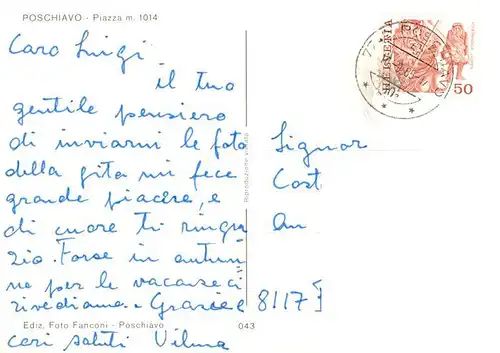 POSCHIAVO - Piazza m. 1014
Caro Luigi
il tuo
gentile pensiero
di inviarmi le foto
della gita mi fece
grande piacere, e
di cuore ti ringra
zio. Forse in autun
no per le vacanze ci
rivediamo. Grazie e
cari saluti Vilma
Ediz. Foto Fanconi - Poschiavo
043
Riproduzione vietata
HELVETIA
50
POSCHIAVO
Signor
Cost
An
8117